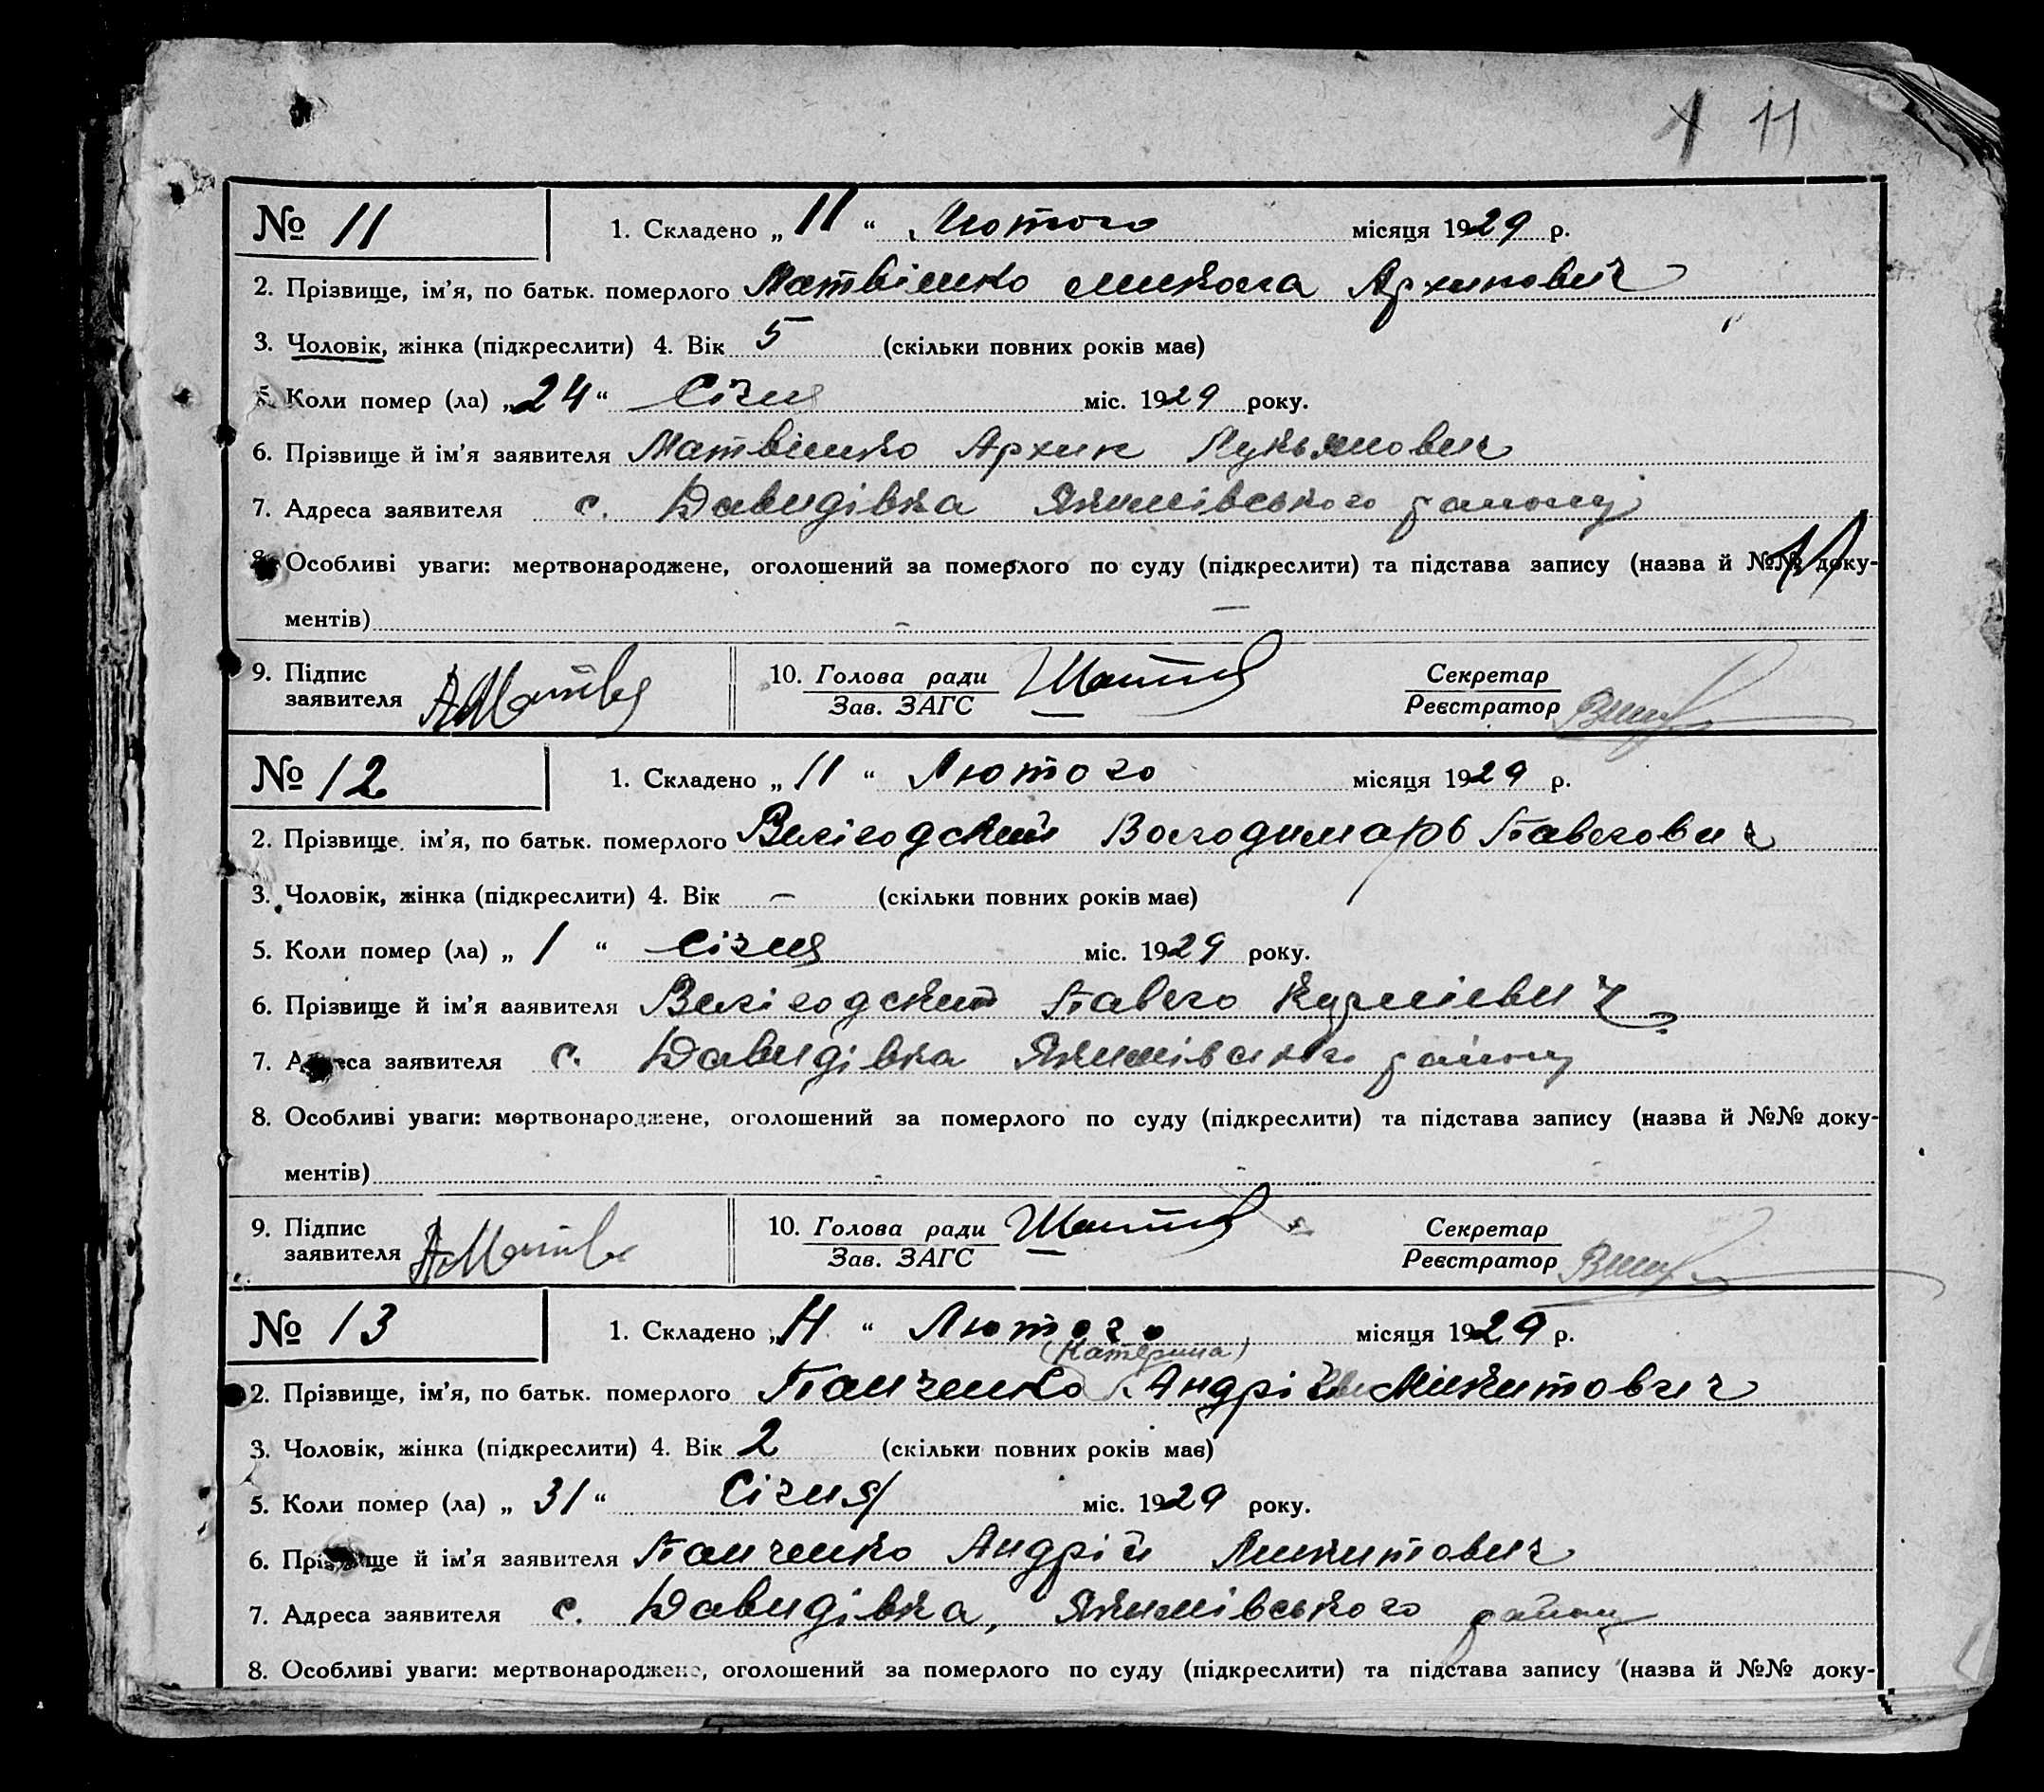 11
№ 11
1. Складено „ 11 “ Лютого місяця 1929 р.
2. Прізвище, ім'я, по батьк. померлого Матвіенко Микола Архипович
3. Чоловік, жінка (підкреслити) 4. Вік 5 (скільки повних років має)
5. Коли помер (ла) „ 24 “ Січня міс. 1929 року.
6. Прізвище й ім'я заявителя Матвіенко Архип Лукьянович
7. Адреса заявителя с. Давидівка Якимівського району
8. Особливі уваги: мертвонароджене, оголошений за померлого по суду (підкреслити) та підстава запису (назва й №№ доку-
11
ментів) –
9. Підпис заявителя 10. Голова ради Зав. ЗАГС Секретар Реєстратор
№ 12
1. Складено „ 11 “ Лютого місяця 1929 р.
2. Прізвище, ім'я, по батьк. померлого Велігодский Володимарь Павлович
3. Чоловік, жінка (підкреслити) 4. Вік – (скільки повних років має)
5. Коли помер (ла) „ 1 “ Січня міс. 1929 року.
6. Прізвище й ім'я заявителя Велігодский Павло Кузміевич
7. Адреса заявителя с. Давидівка Якимівського району
8. Особливі уваги: мертвонароджене, оголошений за померлого по суду (підкреслити) та підстава запису (назва й №№ доку-
ментів)
9. Підпис заявителя 10. Голова ради Зав. ЗАГС Секретар Реєстратор
№ 13
1. Складено „ 11 “ Лютого місяця 1929 р.
(Катерина)
2. Прізвище, ім'я, по батьк. померлого Панченко Андрій Микитович
3. Чоловік, жінка (підкреслити) 4. Вік 2 (скільки повних років має)
5. Коли помер (ла) „ 31 “ Січня міс. 1929 року.
6. Прізвище й ім'я заявителя Панченко Андрій Микитович
7. Адреса заявителя с. Давидівка, Якимівського району
8. Особливі уваги: мертвонароджене, оголошений за померлого по суду (підкреслити) та підстава запису (назва й №№ доку-